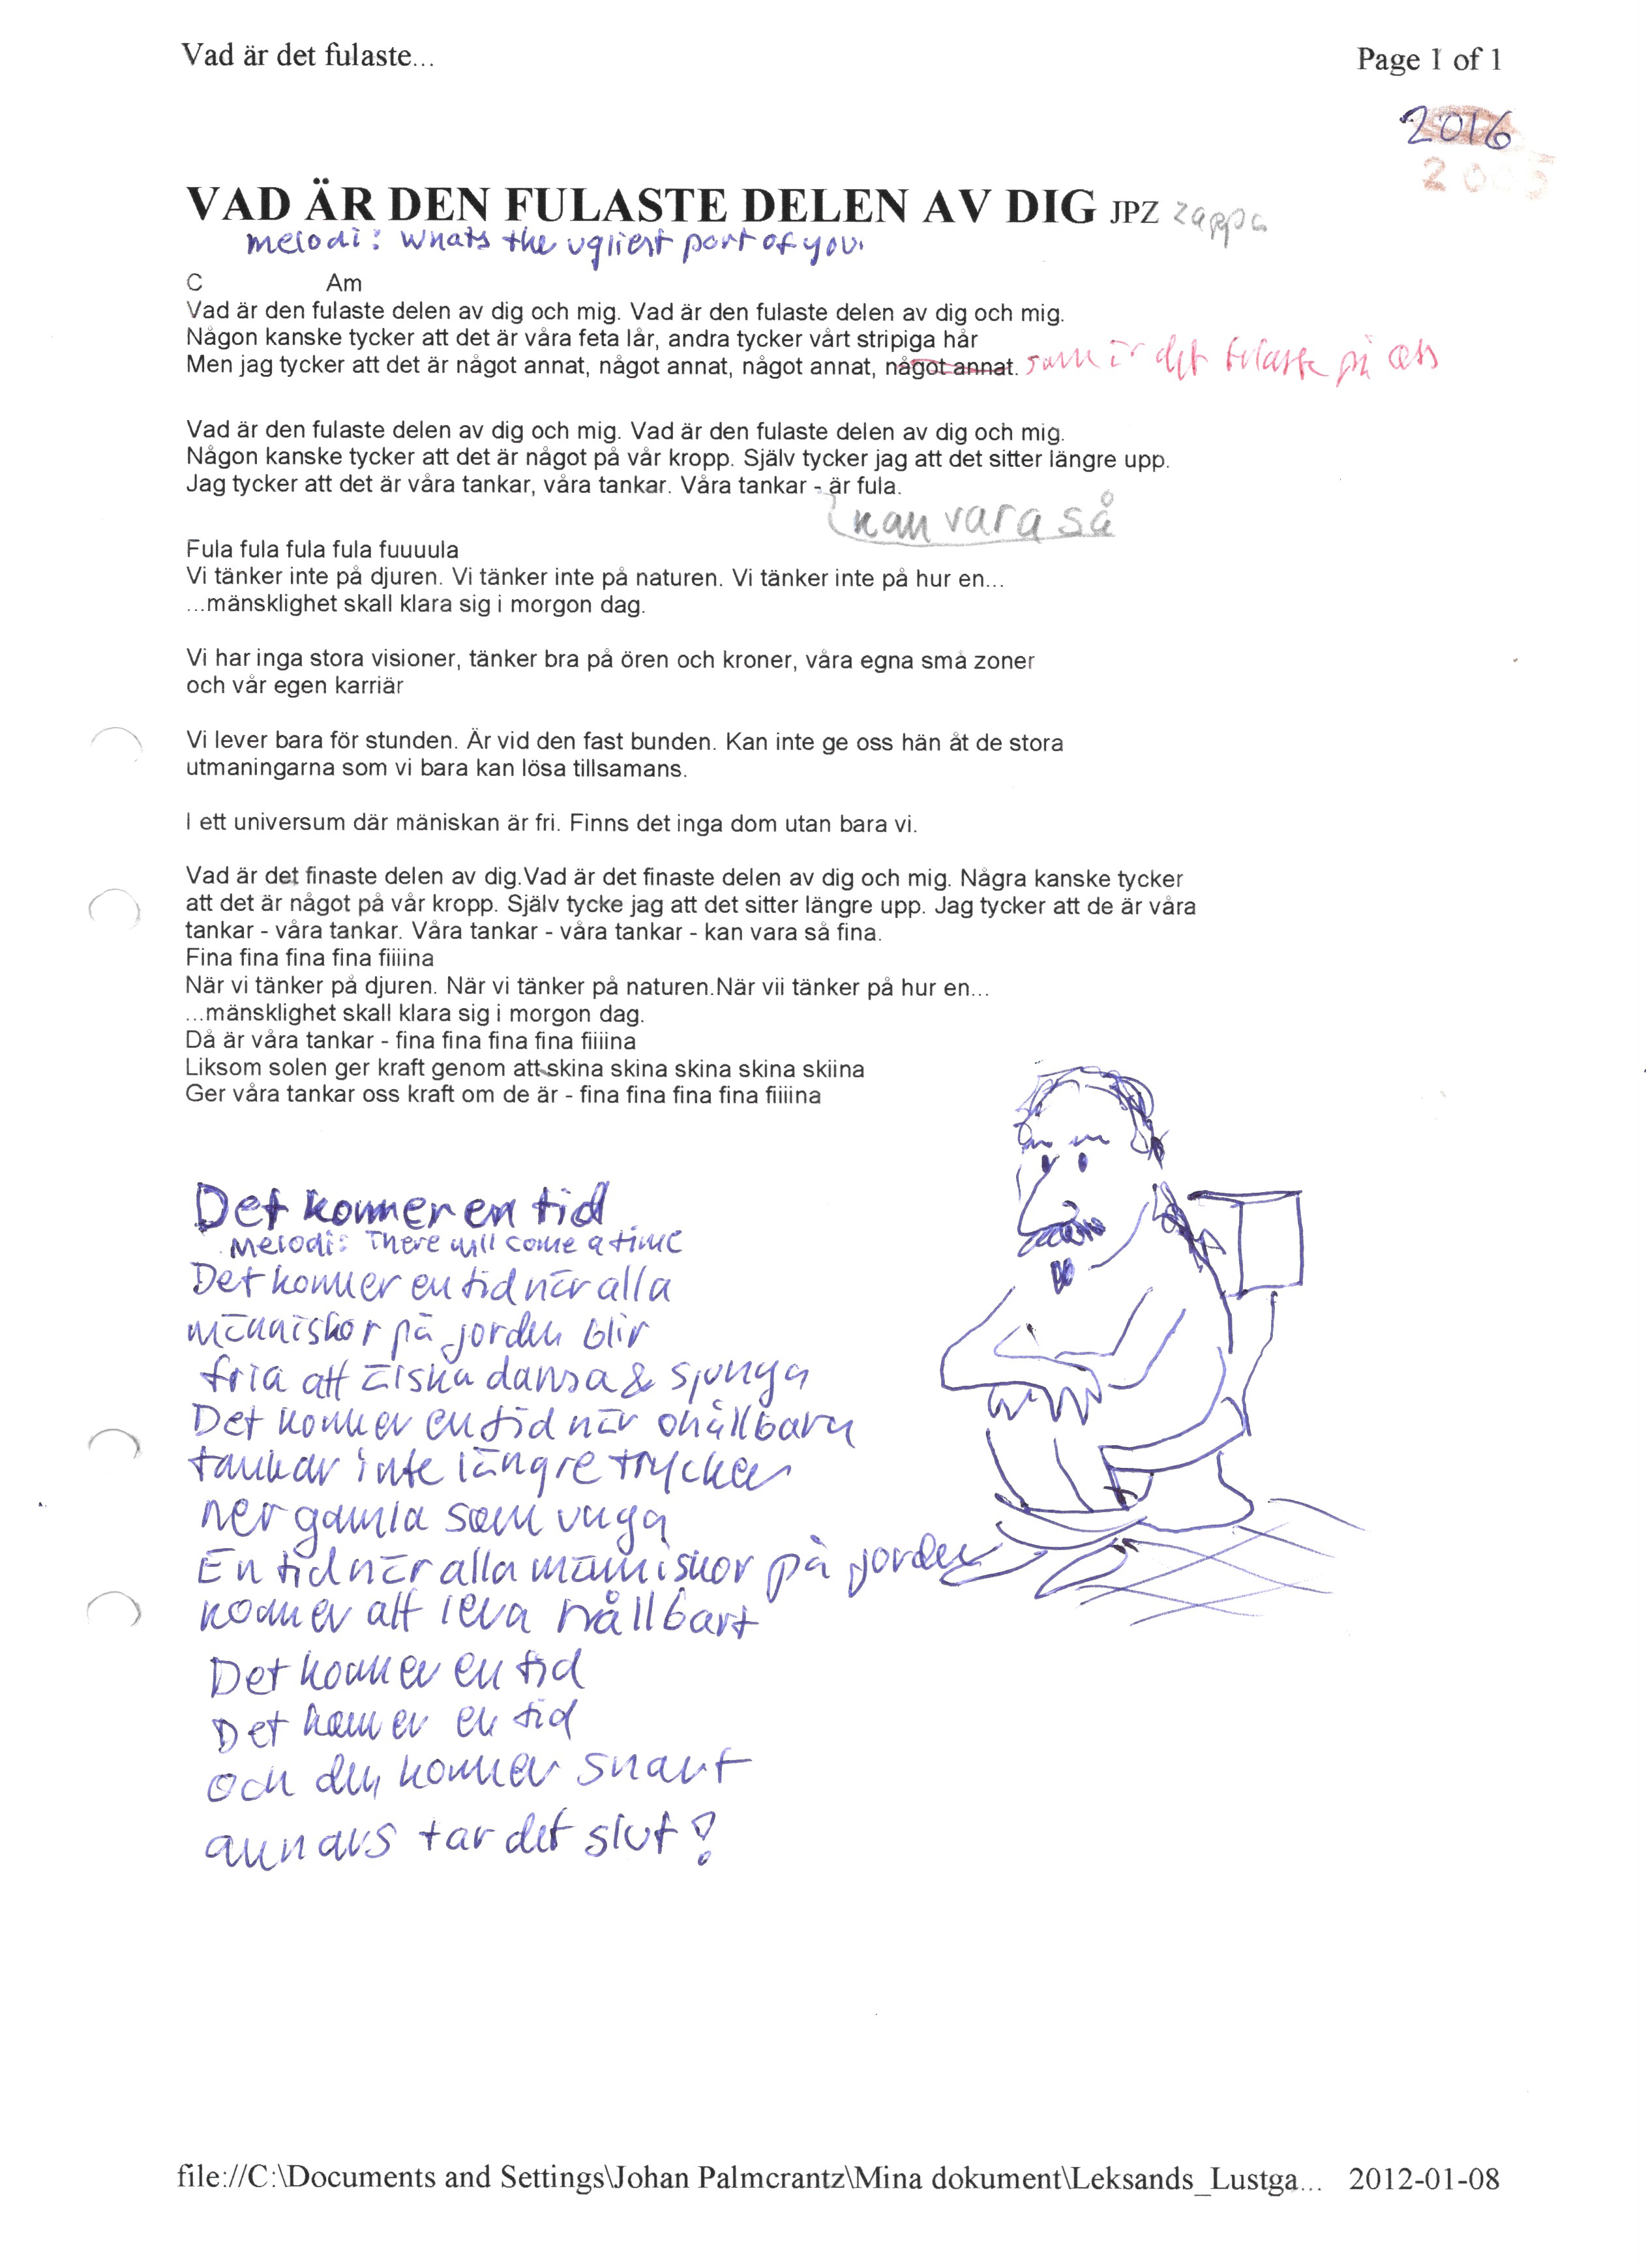 Vad är det fulaste...
Page 1 of 1
2016
VAD ÄR DEN FULASTE DELEN AV DIG JPZ zappa
melodi: Whats the ugliest part of you.
C Am
Vad är den fulaste delen av dig och mig. Vad är den fulaste delen av dig och mig.
Någon kanske tycker att det är våra feta lår, andra tycker vårt stripiga hår
Men jag tycker att det är något annat, något annat, något annat, något annat. som är det fulaste på oss
Vad är den fulaste delen av dig och mig. Vad är den fulaste delen av dig och mig.
Någon kanske tycker att det är något på vår kropp. Själv tycker jag att det sitter längre upp.
Jag tycker att det är våra tankar, våra tankar. Våra tankar - är fula.
kan vara så
Fula fula fula fula fuuuula
Vi tänker inte på djuren. Vi tänker inte på naturen. Vi tänker inte på hur en...
...mänsklighet skall klara sig i morgon dag.
Vi har inga stora visioner, tänker bra på ören och kroner, våra egna små zoner
och vår egen karriär
Vi lever bara för stunden. Är vid den fast bunden. Kan inte ge oss hän åt de stora
utmaningarna som vi bara kan lösa tillsamans.
I ett universum där mäniskan är fri. Finns det inga dom utan bara vi.
Vad är det finaste delen av dig.Vad är det finaste delen av dig och mig. Några kanske tycker
att det är något på vår kropp. Själv tycke jag att det sitter längre upp. Jag tycker att de är våra
tankar - våra tankar. Våra tankar - våra tankar - kan vara så fina.
Fina fina fina fina fiiiina
När vi tänker på djuren. När vi tänker på naturen.När vii tänker på hur en...
...mänsklighet skall klara sig i morgon dag.
Då är våra tankar - fina fina fina fina fiiiina
Liksom solen ger kraft genom att skina skina skina skina skiina
Ger våra tankar oss kraft om de är - fina fina fina fina fiiiina
Det kommer en tid
Melodi: There will come a time
Det kommer en tid när alla
människor på jorden blir
fria att älska dansa & sjunga
Det kommer en tid när ohållbara
tankar inte längre trycker
ner gamla som unga
En tid när alla människor på jorden
kommer att leva hållbart
Det kommer en tid
Det kommer en tid
och den kommer snart
annars tar det slut!
file://C:\Documents and Settings\Johan Palmcrantz\Mina dokument\Leksands_Lustga... 2012-01-08